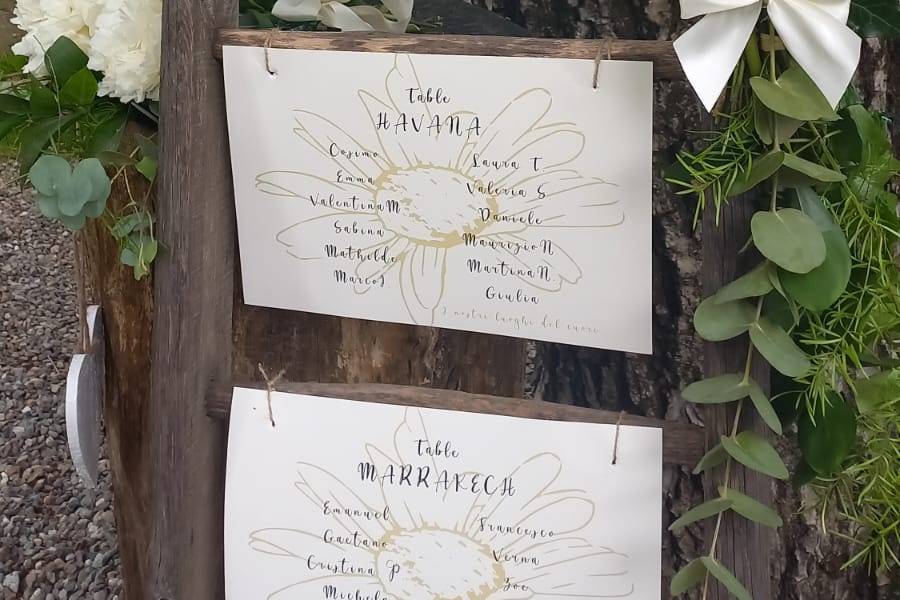 Table
HAVANA
Cosimo
Emma
Valentina M
Sabina
Mathilde
Marco J.
Laura T.
Valeria S
Daniele
Maurizio N
Martina N.
Giulia
I nostri luoghi del cuore
Table
MARRAKECH
Emanuel
Gaetano
Cristina P
Michele
Francesco
Verna
Zoe